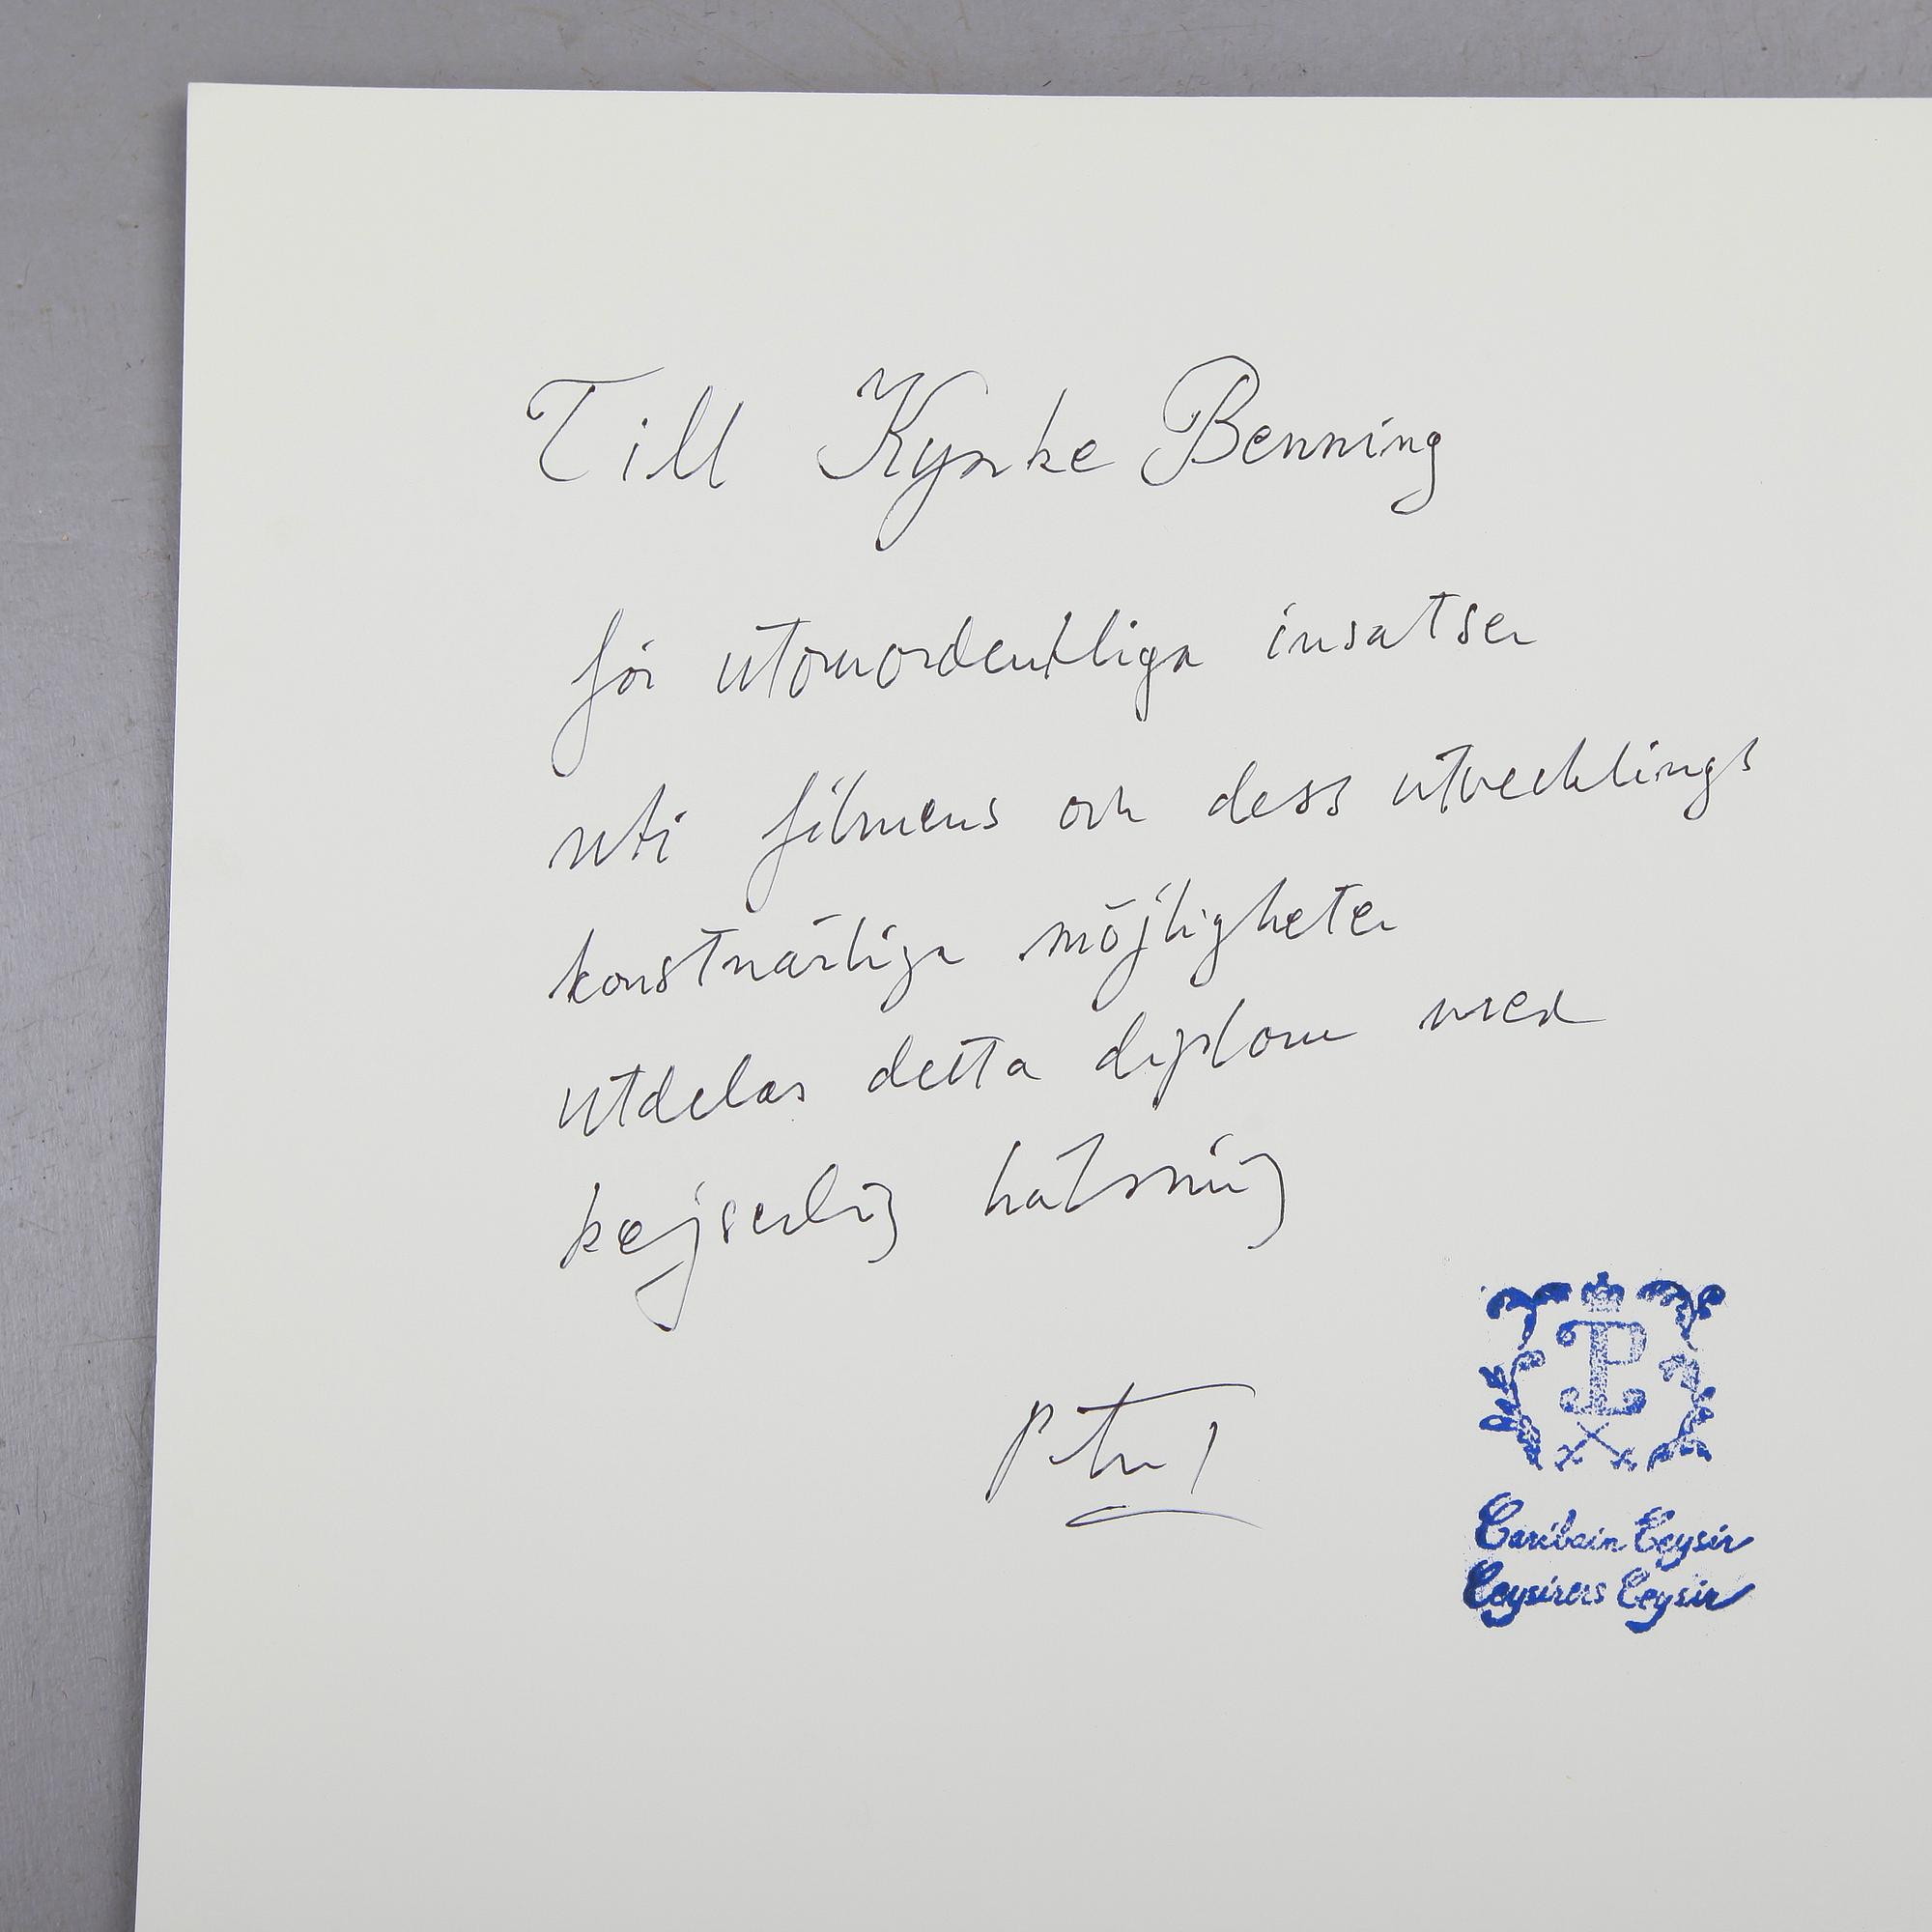 Till Kynke Benning
för utomordentliga insatser
uti filmens och dess utvecklings
konstnärliga möjligheter
utdelas detta diplom med
kejserlig hälsning
Petrus
P
Caribain Ceysir
Ceysirers Ceysir